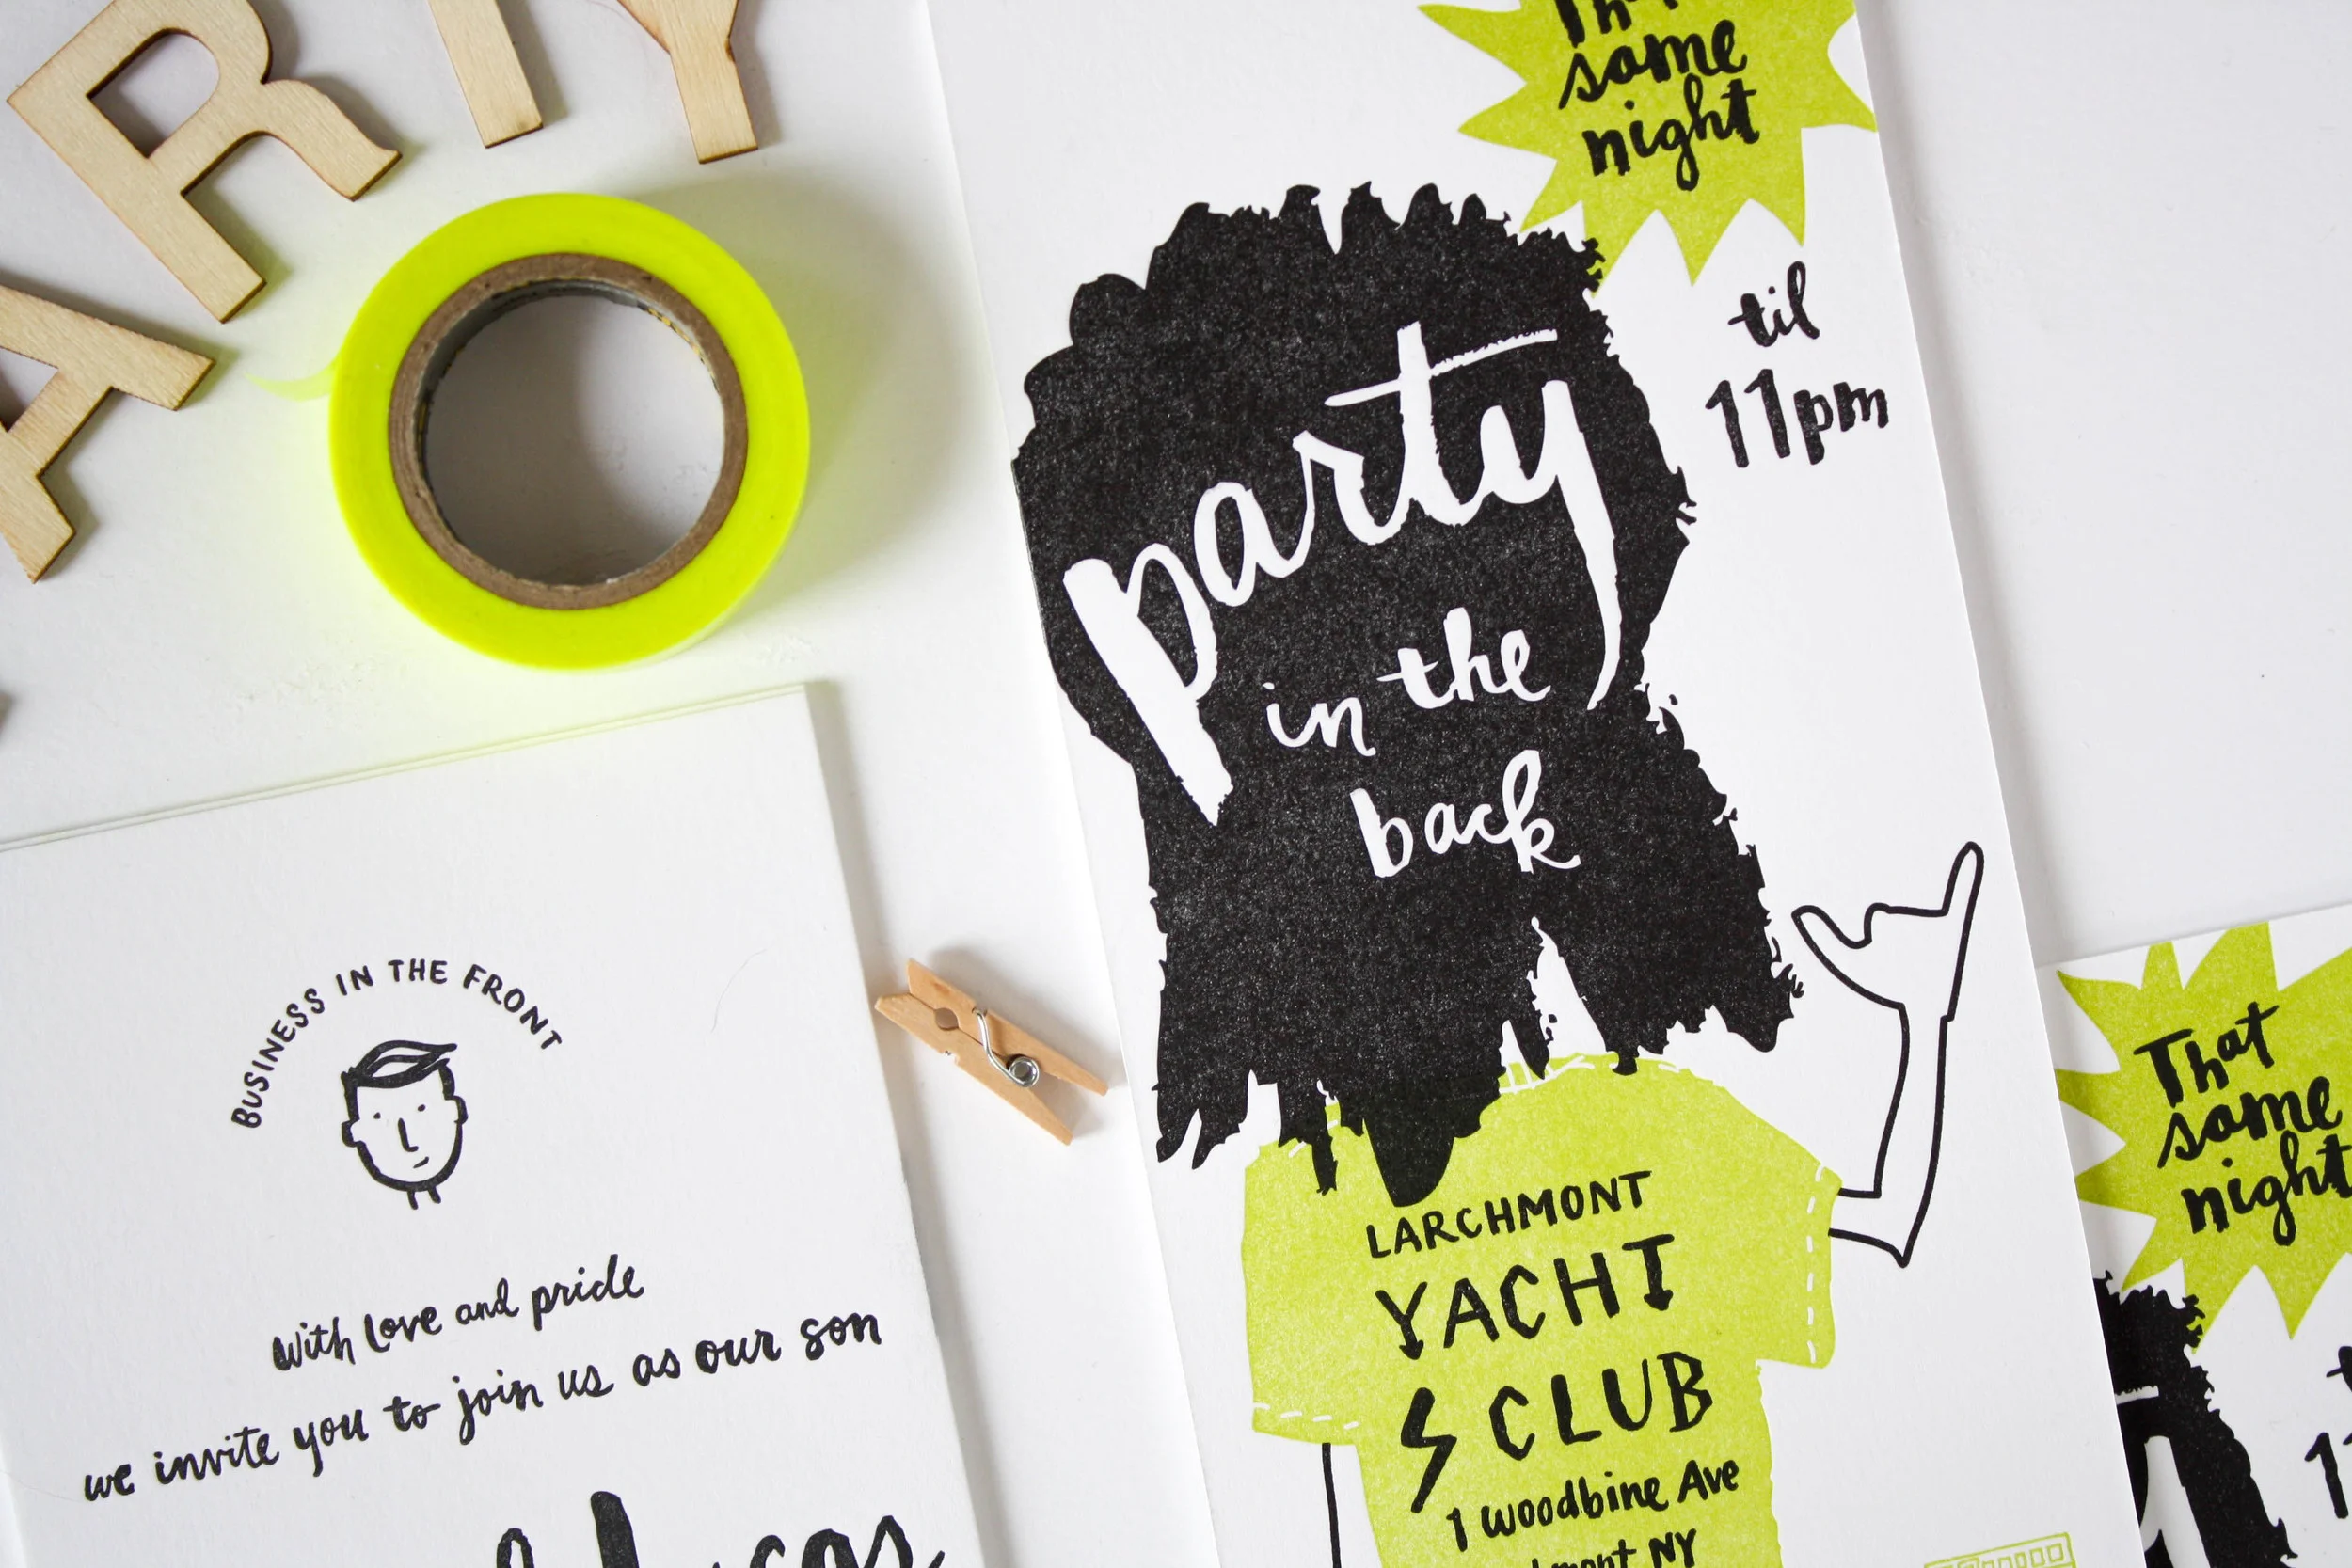 ARTY
That
same
night
til
11pm
party
in the
back
LARCHMONT
YACHT
CLUB
1 woodbine Ave
NY
BUSINESS IN THE FRONT
With love and pride
we invite you to join us as our son
That
same
night